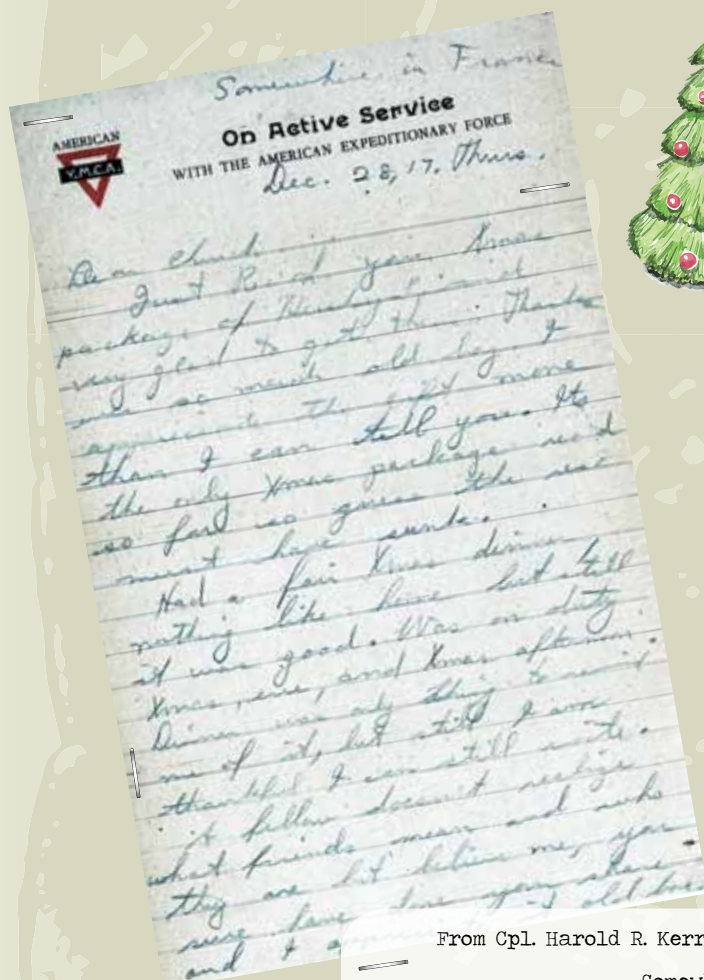 Somewhere in France
AMERICAN
Y.M.C.A.
On Active Service
WITH THE AMERICAN EXPEDITIONARY FORCE
Dec. 28, 17. Thurs.
Dear Chuck
Just Rec'd your Xmas
package of Hershey's and
very glad to get them. Thanks
ever so much old boy. I
appreciate the gift more
than I can tell you. Its
the only Xmas package rec'd
so far so guess the rest
must have sunk.
Had a fair Xmas dinner
nothing like home but still
it was good. Was on duty
Xmas eve, and Xmas afternoon.
Dinner was only thing to remind
me of it, but still I am
thankful I can still write.
A fellow doesn't realize
what friends mean and who
they are but believe me, you
sure have done your share
and I appreciate it old
From Cpl. Harold R. Kerr
Somew